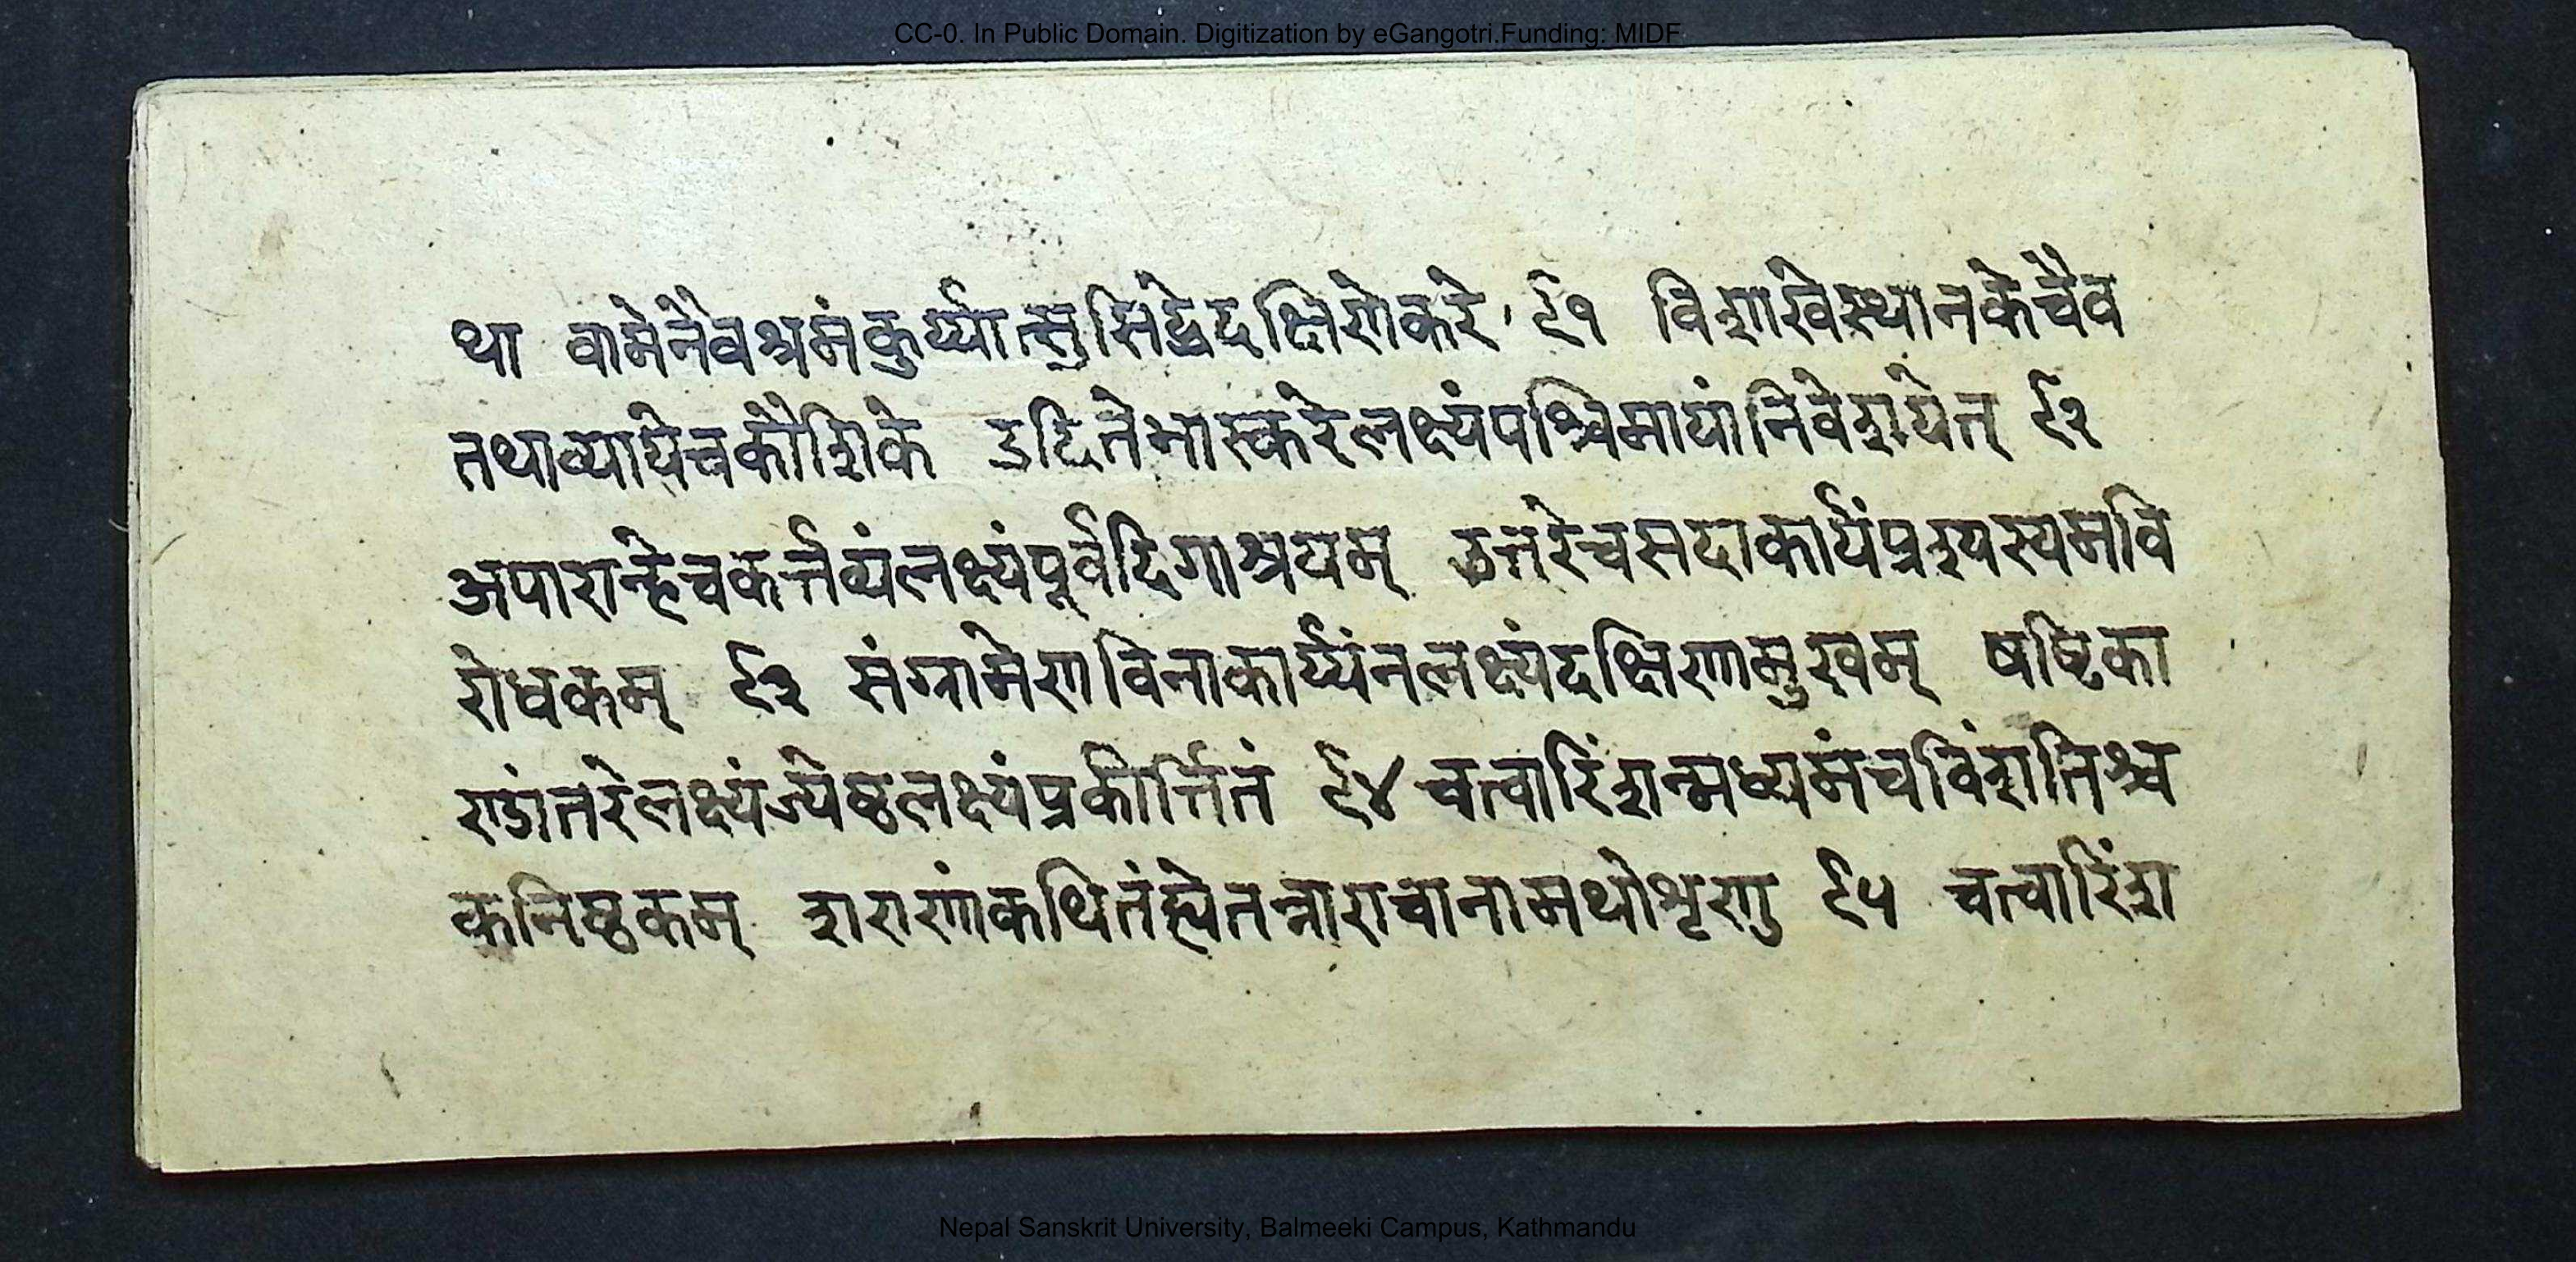 CC-0. In Public Domain. Digitization by eGangotri.Funding: MIDF
था वामेनैवश्रमंकुर्य्यात्सुसिद्धेदक्षिणेकरे ९१ विशाखेस्थानकेचैव
तथाव्यायेचकौशिके उदितेभास्करेलक्ष्यंपश्चिमायांनिवेशयेत् ९२
अपारान्हेचकर्त्तव्यंलक्ष्यंपूर्वदिगाश्रयम् उत्तरेचसदाकार्यंप्रश्यस्यमवि
रोधकम् ९३ संग्रामेणविनाकार्य्यंनलक्ष्यंदक्षिणामुखम् षष्टिका
ण्डांतरेलक्ष्यंज्येष्ठलक्ष्यंप्रकीर्त्तितं ९४ चत्वारिंशन्मध्यमंचविंशतिश्च
कनिष्ठकम् शराणांकथितंह्येतन्नाराचानामथोशृणु ९५ चत्वारिंश
Nepal Sanskrit University, Balmeeki Campus, Kathmandu